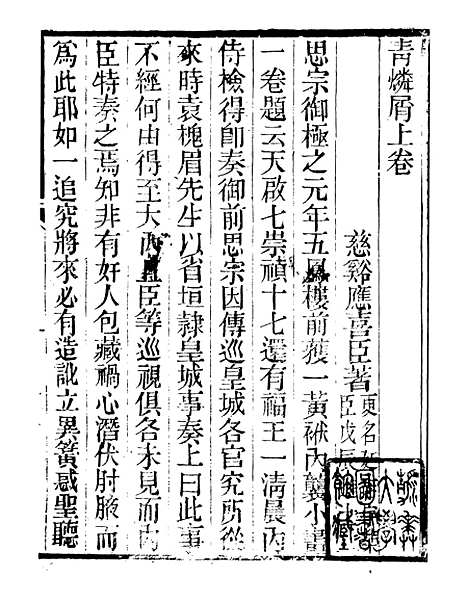 青燐屑上卷
慈谿應喜臣著 更名
臣戊辰
思宗御極之元年五鳳樓前獲一黃袱內襲小畫
一卷題云天啟七崇禎十七還有福王一淸晨內
侍檢得卽奏御前思宗因傳巡皇城各官究所從
來時袁槐眉先生以省垣隷皇城事奏上曰此事
不經何由得至大內臣等巡視俱各未見而內
臣特奏之焉知非有奸人包藏禍心潛伏肘腋而
爲此耶如一追究將來必有造訛立異簧惑聖聽